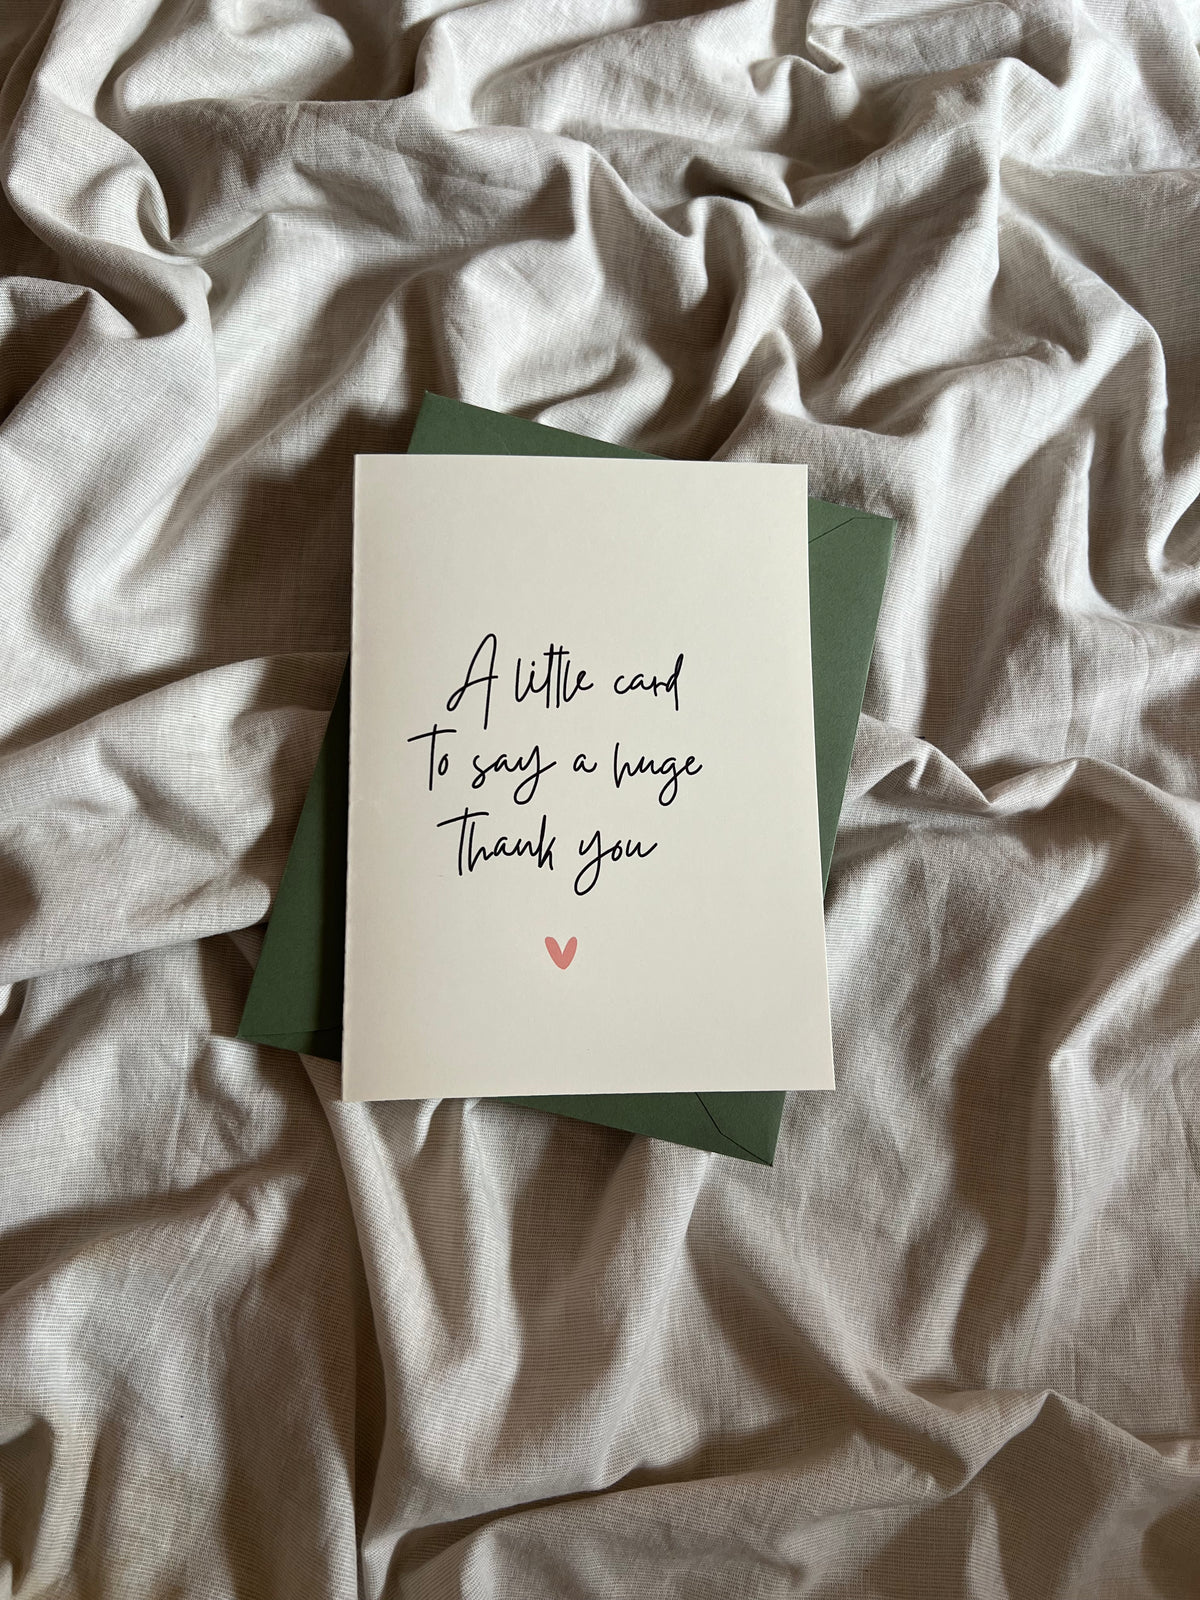 A little card
to say a huge
thank you